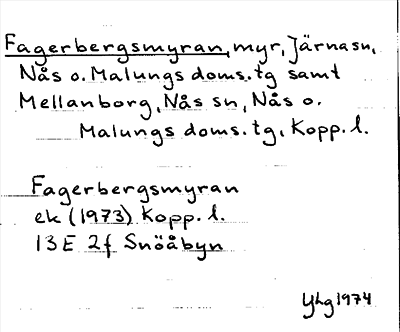 Fagerbergsmyran, myr, Järnasn,
Nås o. Malungs doms.tg samt
Mellanborg, Nås sn, Nås o.
Malungs doms.tg, Kopp. l.
Fagerbergsmyran
ek (1973) Kopp. l.
13E 2f Snöåbyn
Yhg 1974